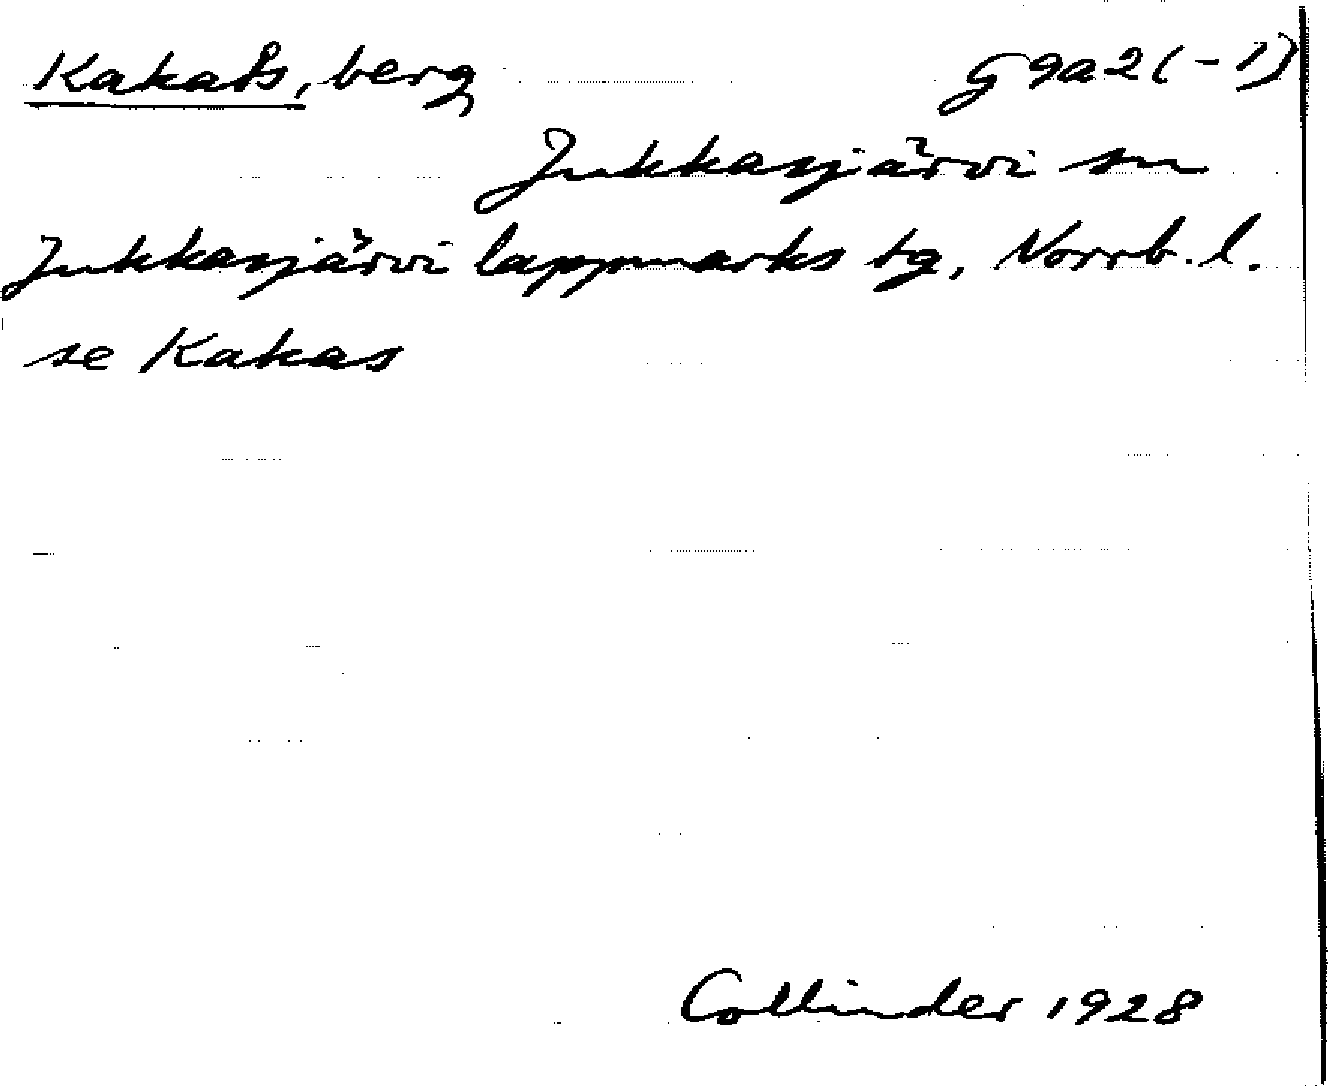 Kakaš, berg G 9a2(-1)
Jukkasjärvi sn
Jukkasjärvi lappmarks tg, Norrb. l.
se Kakas
Collinder 1928